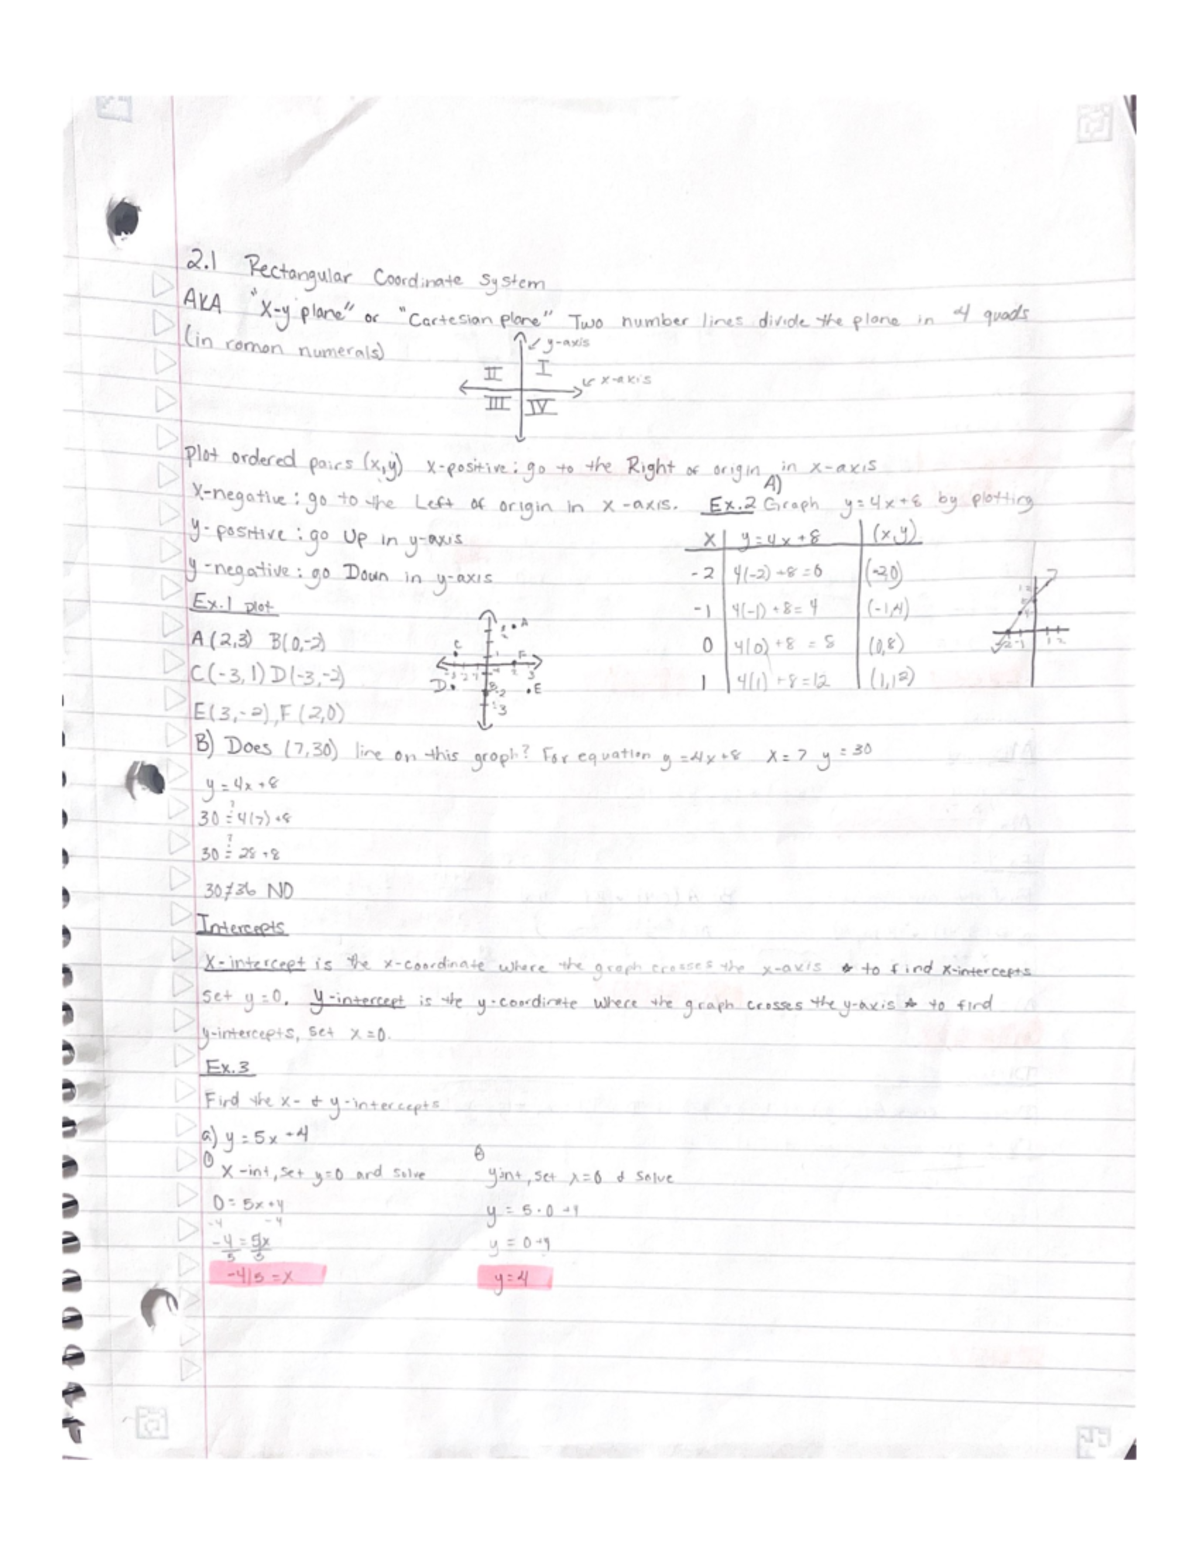 2.1 Rectangular Coordinate System
AKA "X-y plane" or "Cartesian plane" Two number lines divide the plane in 4 quads
(in roman numerals)
y-axis
II I
x-axis
III IV
Plot ordered pairs (x,y) x-positive: go to the Right of origin in x-axis
x-negative: go to the Left of origin in x-axis. Ex.2 A) Graph y=4x+8 by plotting
y-positive: go Up in y-axis
y-negative: go Down in y-axis
Ex.1 plot
A(2,3) B(0,-2)
C(-3,1) D(-3,-2)
E(3,-2), F(2,0)
A
C
F
D
B
E
x | y=4x+8 | (x,y)
-2 | 4(-2)+8=0 | (-2,0)
-1 | 4(-1)+8=4 | (-1,4)
0 | 4(0)+8=8 | (0,8)
1 | 4(1)+8=12 | (1,12)
B) Does (7,30) line on this graph? For equation y=4x+8 x=7 y=30
y=4x+8
30≟4(7)+8
30≟28+8
30≠36 NO
Intercepts
X-intercept is the x-coordinate where the graph crosses the x-axis * to find x-intercepts
set y=0. y-intercept is the y-coordinate where the graph crosses the y-axis * to find
y-intercepts, set x=0.
Ex.3
Find the x- & y-intercepts
a) y=5x+4
① x-int, set y=0 and solve
0=5x+4
-4 -4
-4=5x
5 5
-4/5=x
② y-int, set x=0 & solve
y=5·0+4
y=0+4
y=4